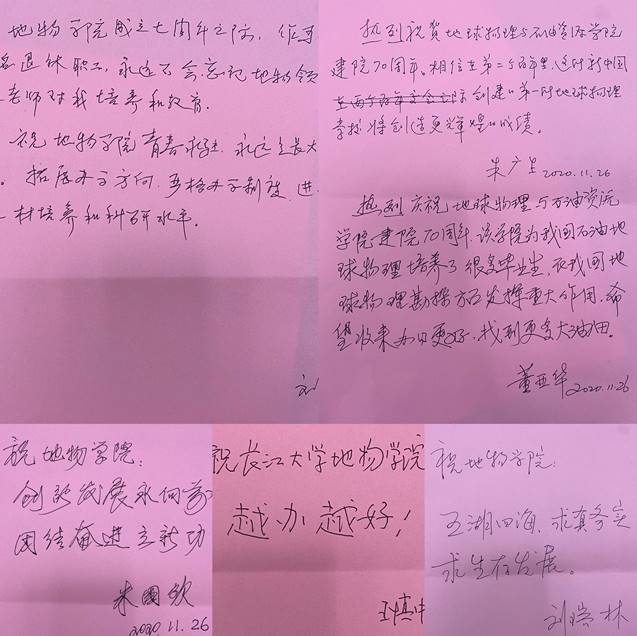 地物学院成立七十周年之际，作为
名退休职工，永远不会忘记地物领
老师对我培养和教育。
祝地物学院青春永驻，永远立长大
。拓展办学方向，严格办学制度，进
材培养和科研水平。
刘
热烈祝贺地球物理与石油资源学院
建院70周年，相信在第二个百年里，这所新中国
创建的第一所地球物理
学校将创造更辉煌的成绩。
朱广生 2020.11.26
热烈庆祝地球物理与石油资源
学院建院70周年，该学院为我国石油地
球物理培养了很多毕业生，在我国地
球物理勘探方面发挥重大作用，希
望将来办的更好，找到更多大油田。
董亚华 2020.11.26
祝地物学院：
创新发展永向前
团结奋进立新功
朱国欽
2020.11.26
祝长江大学地物学院
越办越好！
祝地物学院：
五湖四海，求真务实
求生存发展。
刘瑞林